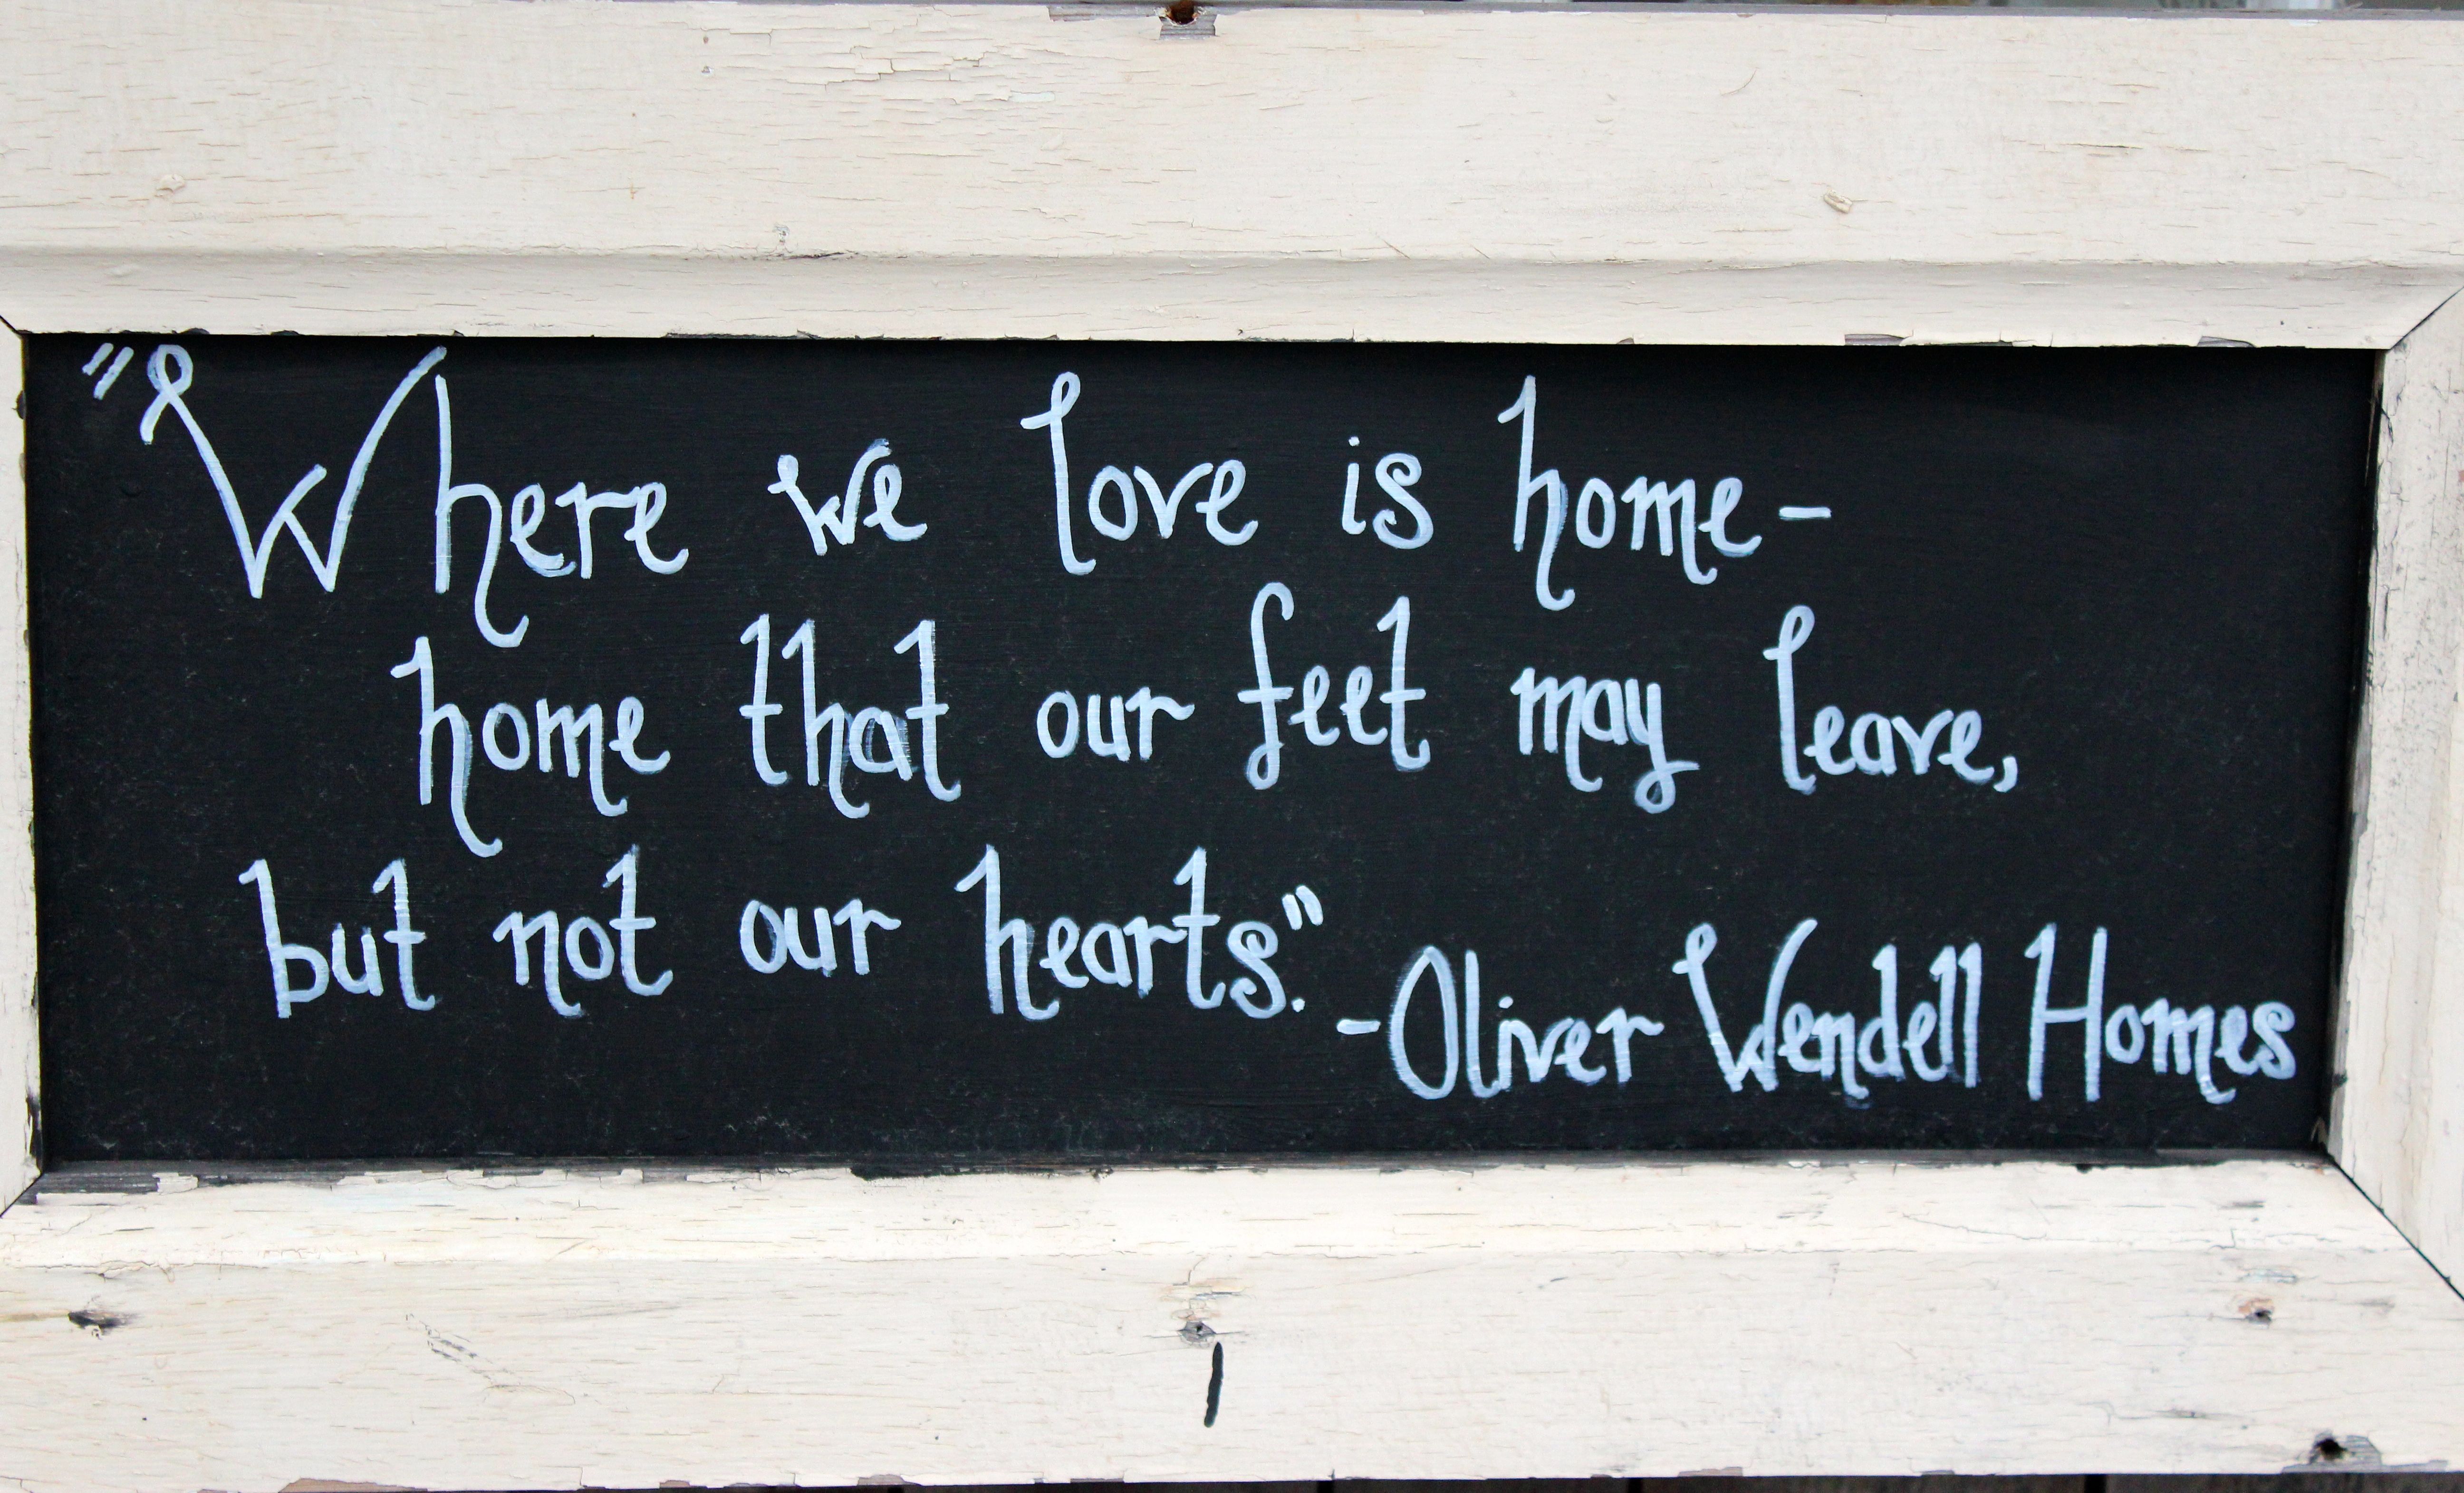 "Where we love is home-
home that our feet may leave,
but not our hearts."
-Oliver Wendell Homes